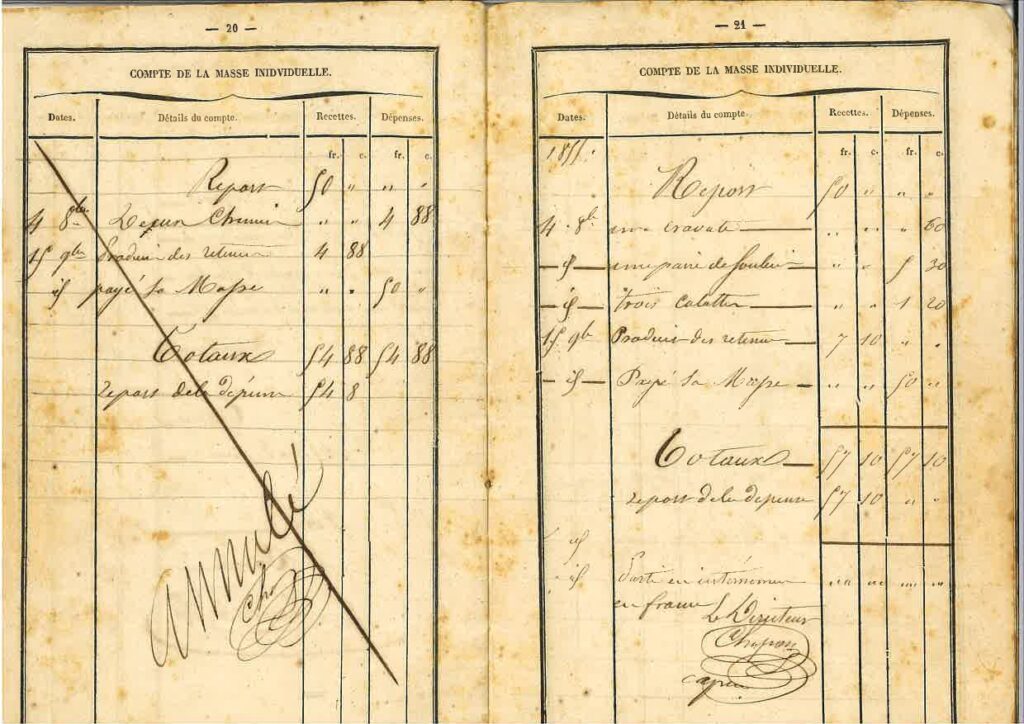 — 20 —
COMPTE DE LA MASSE INIDVIDUELLE.
Dates. Détails du compte. Recettes. Dépenses.
fr. c. fr. c.
Report 50 " " "
4 8bre " " 4 88
15 9bre Produit des retenues 4 88
id payé sa Masse " " 50 "
Totaux 54 88 54 88
report de la dépense 54 8
annulé
— 21 —
COMPTE DE LA MASSE INDIVIDUELLE.
Dates. Détails du compte. Recettes. Dépenses.
fr. c. fr. c.
Report 50 " " "
4 8b une cravate " " " 60
— id — une paire de souliers " " 5 30
— id — trois calottes " " 1 20
15 9b Produit des retenues 7 10 " "
— id — Payé sa Masse " " 50 "
Totaux 57 10 57 10
report de la depense 57 10 " "
id
id Parti en internement " " " "
en france
Le Directeur